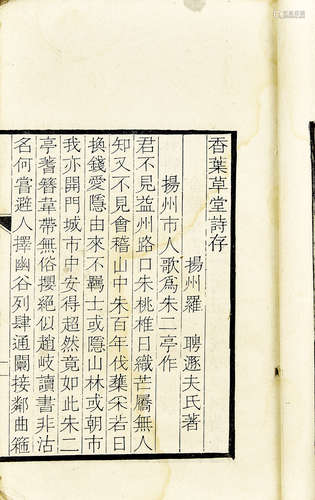 香葉草堂詩存
揚州羅 聘遯夫氏著
揚州市人歌爲朱二亭作
君不見益州路口朱桃椎日織芒屩無人
知又不見會稽山中朱百年伐蕉采若日
換錢愛隱由來不羈士或隱山林或朝市
我亦開門城市中安得超然竟如此朱二
亭耆簪韋帶無俗攖絕似趙岐讀書非沽
名何嘗避人擇幽谷列肆通闤接鄰曲籀